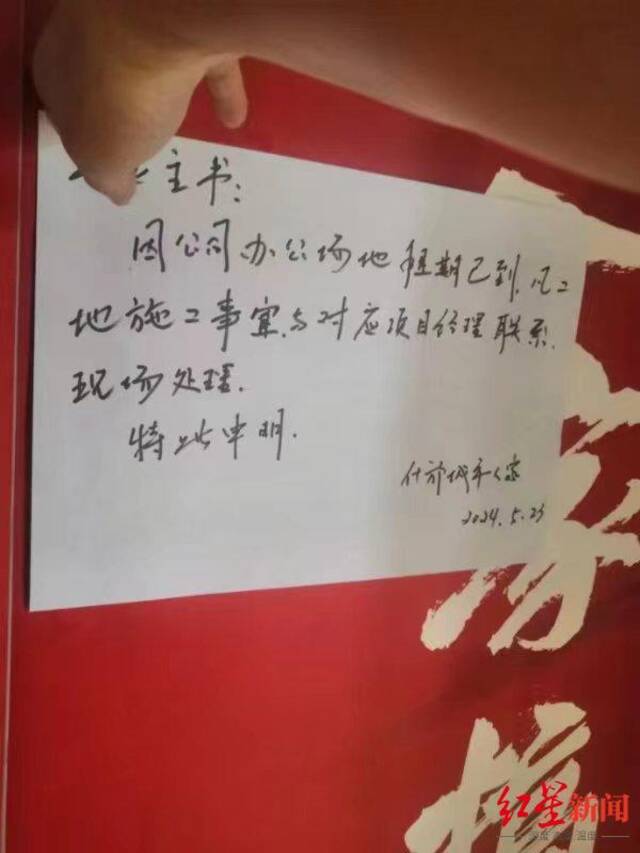 主书:
因公司办公场地租期已到,凡工
地施工事宜,与对应项目经理联系,
现场处理.
特此申明.
什邡城市人家
2024.5.23
家
红星新闻
深度 态度 温度